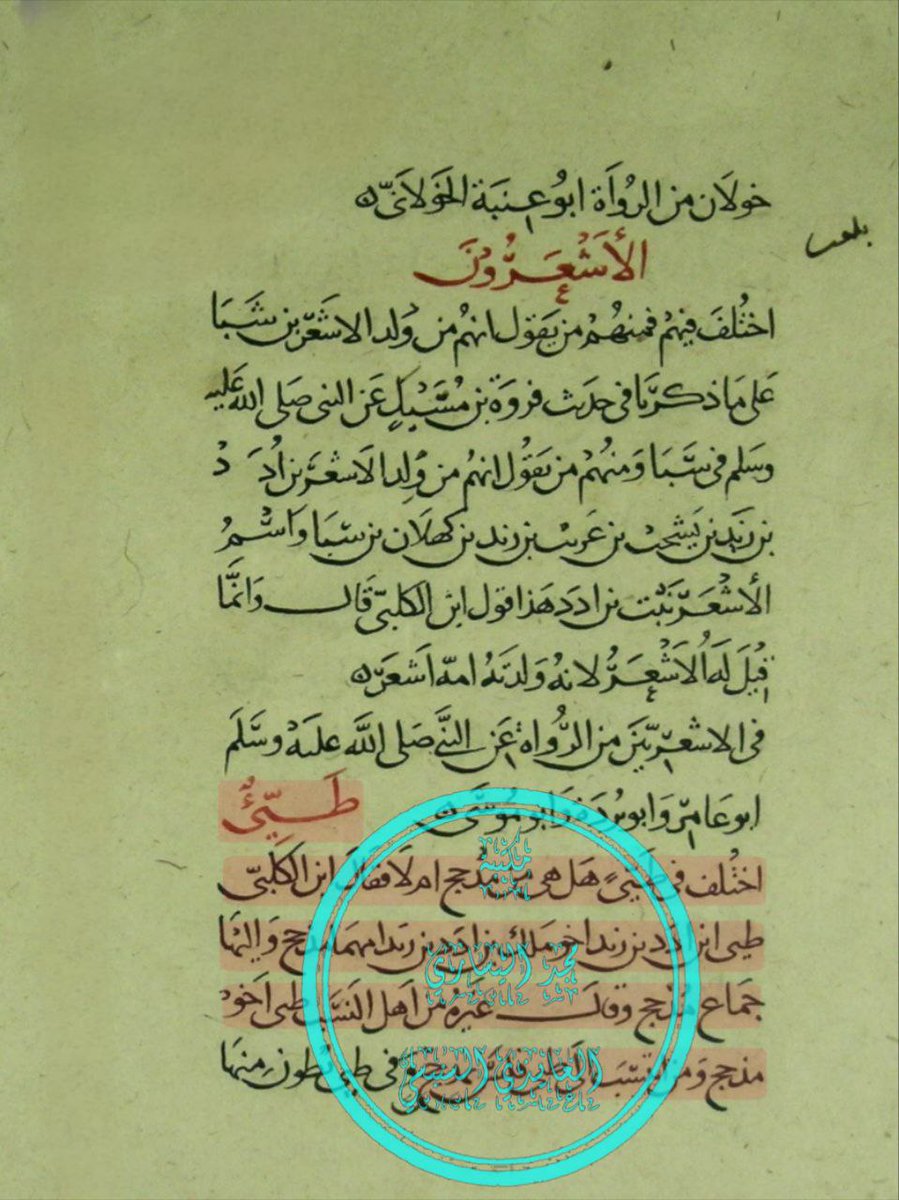 خولان من الرواة ابو عنبة الخولانيّ ه
بلغت
الأَشْعَرُّونَ
اختُلفَ فيهم فمنهُمْ من يَقول انهم من وَلد الاشعَر بن سَبَا
عَلى مَا ذكرنَا فى حديث فروَة بن مُسَيْكٍ عَن النبى صَلى الله عَليه
وسَلم فى سَبَا وَمنهُمْ من يَقُول انهم من وَلِد الاَشعَر بن اُدَدَ
بن زَيد بن يَشْجب بن عَريب بن زيد بن كهلان بن سَبَا وَاسْمُ
الأَشْعَر نَبْت بن ادَد هَذا قول ابن الكلبىّ قَال وَانَّمَا
قِيْلَ لَهُ الاَشْعَرُ لانهُ وَلدَتهُ امّه اَشعَر ه
فى الاشعَرِيّينَ من الرُّواةِ عَن النبىّ صَلى اللَّه عَليهْ وسَّلَم
ابو عَامِرٍ وَابو بُردَة وَابو مُوسَى ه طَيِّئُ
اختُلف فى طَيّئٍ هَل هى من مَذحج ام لا فقالَ ابن الكَلبىّ
طيى ابن ادَد بن زيد اخو مَالك بن ادَد بن زيد امهما مَذحج وَاليْهَا
جمَاع مَذْحج وقال غَيرُهُ من اَهل النَسَب طيى اخوْ
مذحج وَمن نسَبَ الى طى فى بطُون منهَا
مكتبة
محمد